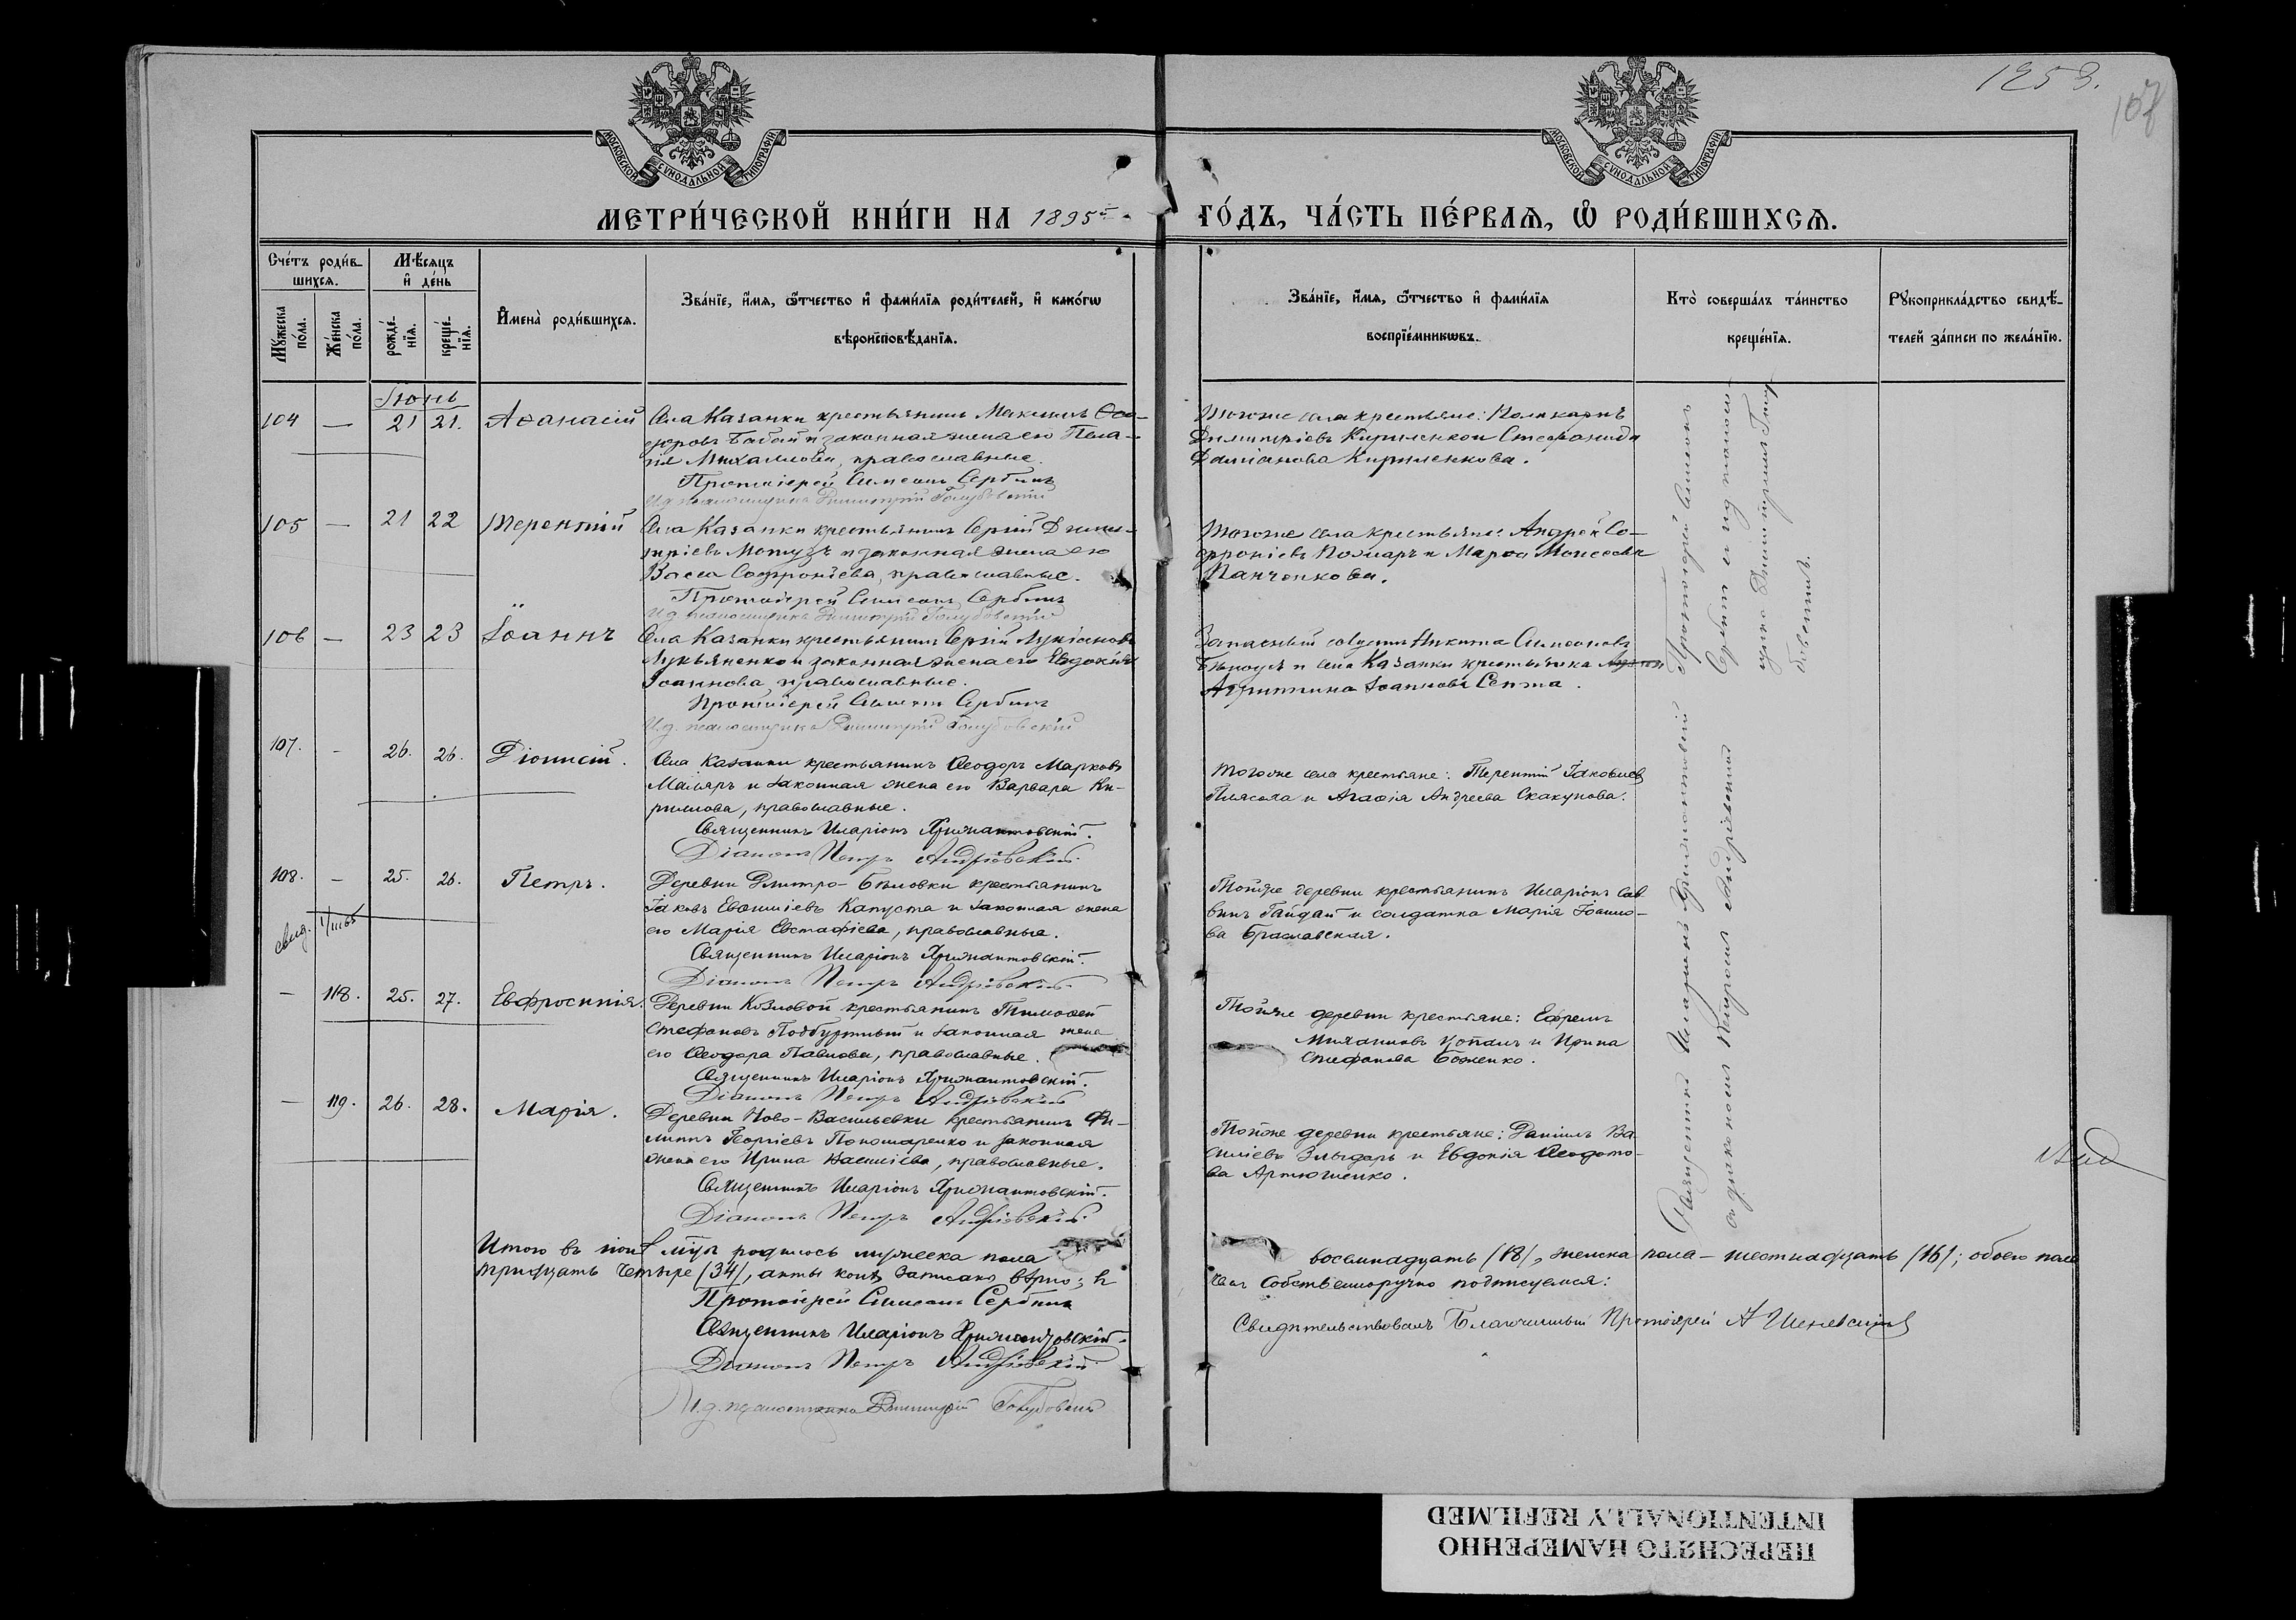 1253.
107
МОСКОВСКОЙ СѴНОДАЛЬНОЙ ТИПОГРАФІИ
МОСКОВСКОЙ СѴНОДАЛЬНОЙ ТИПОГРАФІИ
МЕТРИ́ЧЕСКОЙ КНИ́ГИ НА 1895й
ГО́ДЪ, ЧА́СТЬ ПЕ́РВАѦ, Ѡ РОДИ́ВШИХСѦ.
Сче́тъ роди́в-
шихсѧ.
Мѣ́сѧцъ
и҆ де́нь
Мꙋ́жеска по́ла.
Же́нска по́ла.
рожде́-нїѧ.
креще́-нїѧ.
И҆мена̀ роди́вшихсѧ.
Зва́нїе, и҆́мѧ, ѻ҆́тчество и҆ фами́лїѧ роди́телей, и҆ како́гѡ
вѣроисповѣ́данїѧ.
Зва́нїе, и҆́мѧ, ѻ҆́тчество и҆ фами́лїѧ
воспрїе́мникѡвъ.
Кто̀ соверша́лъ та́инство
креще́нїѧ.
Рꙋкоприкла́дство свидѣ́-
телей за́писи по жела́нїю.
Іюнь
104 — 21 21. Аѳанасій
Села Казанки крестьянинъ Максимъ Ѳео-
доровъ Бабай и законная жена его Пела-
гія Михаилова, православные.
Протоіерей Симеонъ Сербинъ
И.д. псаломщика Димитрій Голубовскій
Тогоже села крестьяне: Поликарпъ
Димитріевъ Кириленко и Стефанида
Даміанова Кириленкова.
105 — 21 22 Терентій
Села Казанки крестьянинъ Сергій Дими-
тріевъ Мотузъ и законная жена его
Васса Софроніева, православные.
Протоіерей Симеонъ Сербинъ
И.д. псаломщика Димитрій Голубовскій
Тогоже села крестьяне: Андрей Со-
фроніевъ и Марѳа Моисеева
Панченкова.
106 — 23 23 Іоаннъ
Села Казанки крестьянинъ Сергій Лукіановъ
Лукьяненко и законная жена его Евдокія
Іоаннова, православные.
Протоіерей Симеонъ Сербинъ
И.д. псаломщика Димитрій Голубовскій
Запасный Никита Симеоновъ
и села Казанки крестьянка
Агриппина Іоаннова Септа.
107. - 26. 26. Діонисій.
Села Казанки крестьянинъ Ѳеодоръ Марковъ
Маляръ и законная жена его Варвара Ки-
рилова, православные.
Священникъ Иларіонъ Хрисмантовскій.
Діаконъ Петръ Андріевскій.
Тогоже села крестьяне: Терентій Іаковлевъ
Плясола и Агаѳія Андреева Скакунова.
108. - 25. 26. Петръ.
свид.
Деревни Дмитро-Бѣловки крестьянинъ
Іаковъ Евѳиміевъ Капуста и законная жена
его Марія Евстафіева, православные.
Священникъ Иларіонъ Хрисмантовскій.
Діаконъ Петръ Андріевскій.
Тойже деревни крестьянинъ Иларіонъ Сав-
винъ Гайдай и солдатка Марія Іоанно-
ва Браславская.
— 118. 25. 27. Евфросинія.
Деревни Козловой крестьянинъ Тимоѳей
Стефановъ Подбуртный и законная жена
его Ѳеодора Павлова, православные.
Священникъ Иларіонъ Хрисмантовскій.
Діаконъ Петръ Андріевскій
Тойже деревни крестьяне: Ефремъ
и Ирина
Стефанова Боженко.
— 119. 26. 28. Марія.
Деревни Ново-Васильевки крестьянинъ Фи-
липпъ Георгіевъ Пономаренко и законная
жена его Ирина Василіева, православные.
Священникъ Иларіонъ Хрисмантовскій.
Діаконъ Петръ Андріевскій.
Тойже деревни крестьяне: Даніилъ Ва-
силіевъ Злыдарь и Евдокія Ѳеодото-
ва Артюшенко.
Протоіерей Симеонъ
Сербинъ и ид псаломщ-
щика Димитрій Голу-
бовскій.
Священникъ Иларіонъ Хрисмантовскій
съ діакономъ Петромъ Андріевскимъ
Итого въ іюнѣ мцѣ родилось мужеска пола
восемнадцать (18), женска пола — шестнадцать (16); обоего пола
тридцать четыре (34), акты коихъ записаны вѣрно; въ
чемъ собственноручно подписуемся:
Протоіерей Симеонъ Сербинъ
Священникъ Иларіонъ Хрисмантовскій.
Діаконъ Петръ Андріевскій.
И.д. псаломщика Димитрій Голубовскій
Свидѣтельствовалъ Благочинный Протоіерей
ПЕРЕСНЯТО НАМЕРЕННО
INTENTIONALLY REFILMED